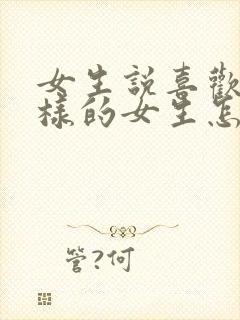 女生説喜歡
樣的女生怎
管?何